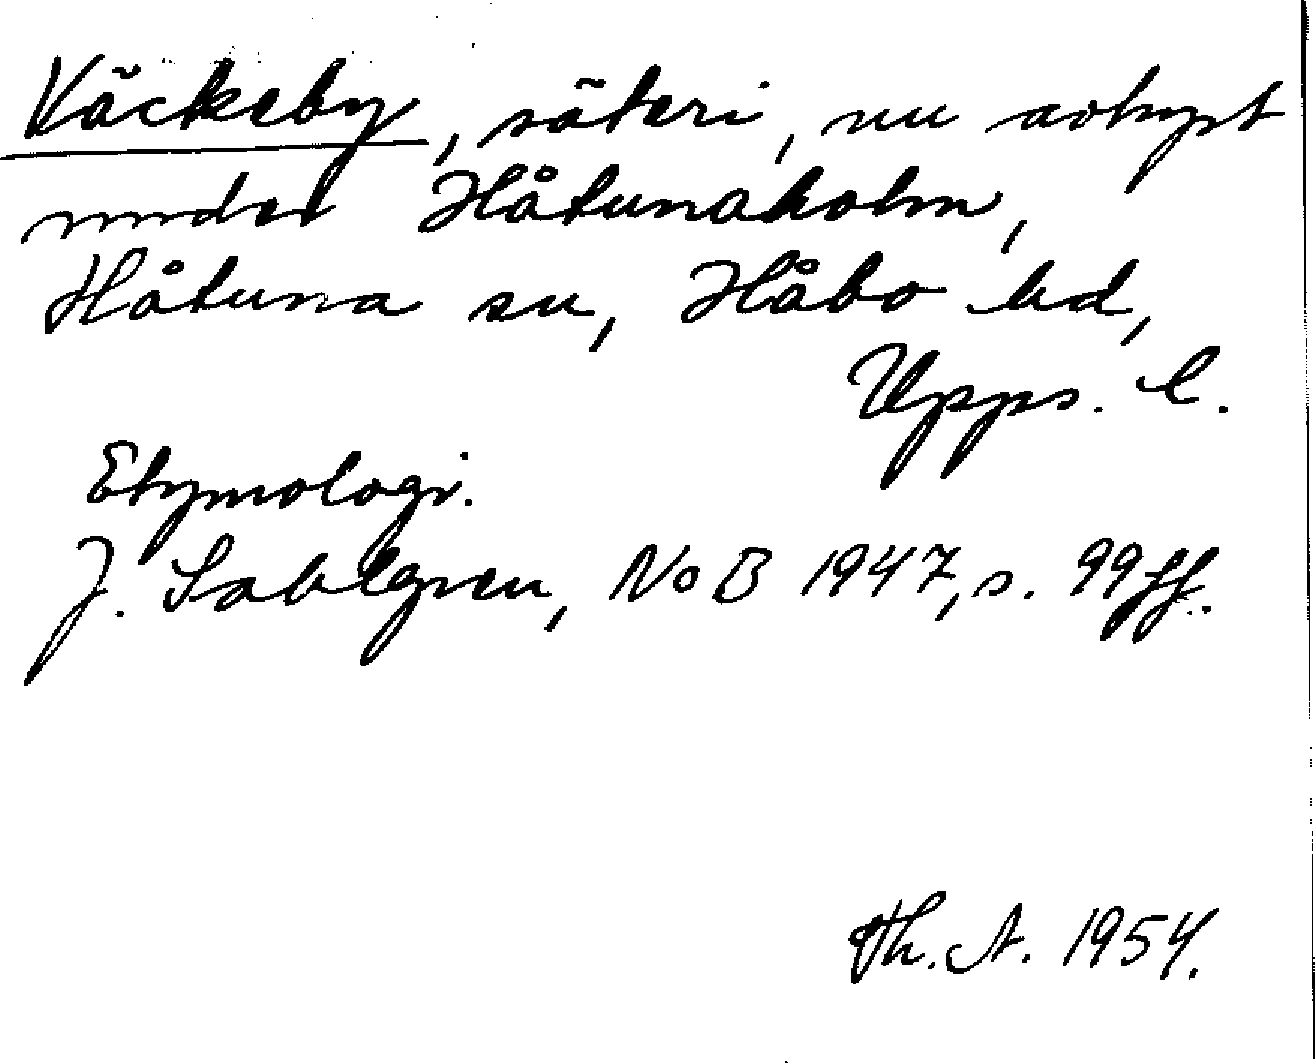 Väckeby, säteri, nu avhyst
under Håtunaholm,
Håtuna sn, Håbo hd,
Upps. l.
Etymologi.
J. Sahlgren, NoB 1947, s. 99 ff.
Th. A. 1954.